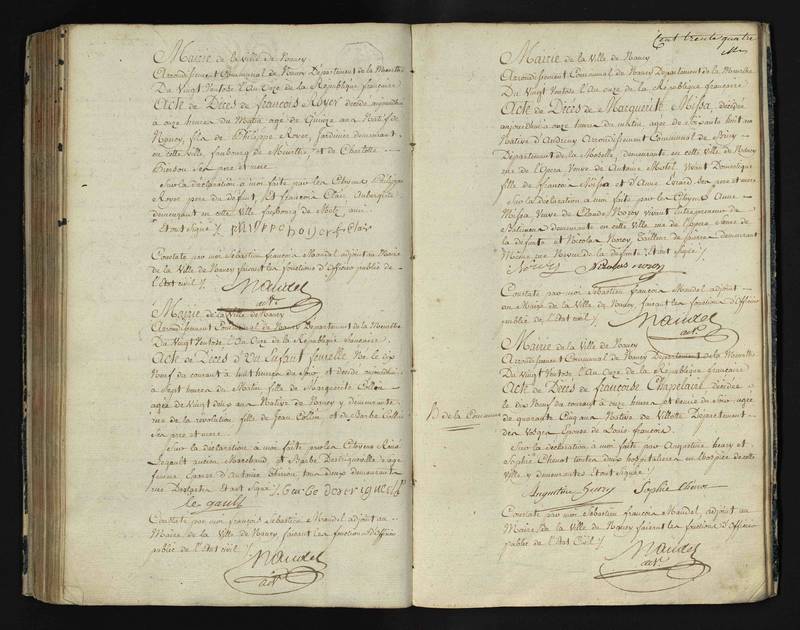 Mairie de la ville de Nancy
Arrondissement Communal de Nancy Département de la Meurthe
Du Vingt Ventose l'An Onze de la République française
Acte de Décès de françois Royer décédé aujourdhui
à onze heures du Matin agé de Quinze ans Natif de
Nancy, fils de Philippe Royer, Jardinier demeurant
en cette ville, faubourg de Meurthe, et de Charlotte
Pierson ses pere et mere
Sur la déclaration à moi faite par les Citoyens Philippe
Royer pere du défunt, Et françois Clair Aubergiste
demeurant en cette Ville faubourg de Metz, ami
Et ont Signé /.
Constaté par moi Sébastien françois Mandel adjoint au Maire
de la Ville de Nancy faisant les fonctions d'Officier public de
l'Etat civil /.
Mandel
adt.
Mairie de la Ville de Nancy
Arrondissement Communal de Nancy Département de la Meurthe
Du Vingt Ventose l'An Onze de la République française
Acte de Décès d'Un Enfant femelle Né le dix
Neuf du courant à huit heures du Soir, et décédé aujourdhui
à Sept heures du Matin, fille de Marguerite Collin
agée de Vingt deux ans Native de Nancy y demeurante
rue de la révolution, fille de Jean Collin et de Barbe
Ses pere et mere
Sur la déclaration à moi faite par les Citoyens
ancien Marchand, et Barbe
Epouse d'Antoine tous deux demeurants
rue Et ont Signé /.
le gault
Constaté par moi françois Sébastien Mandel adjoint au
Maire de la Ville de Nancy faisant les fonctions d'Officier
public de l'Etat civil /.
Mandel
adt.
Cent trente quatre
Mairie de la Ville de Nancy
Arrondissement Communal de Nancy Département de la Meurthe
Du Vingt Ventose l'An Onze de la République française
Acte de Décès de Marguerite Missa, décédée
aujourdhui à onze heures du matin, agée de Soixante huit ans
Native d'Audreny Arrondissement Communal de Briey
Département de la Moselle, demeurante en cette Ville de Nancy
rue de l'Opera Veuve de Antoine Vivant Domestique
fille de françois Missa et d'Anne Evrard Ses pere et mere
Sur la déclaration à moi faite par les Citoyens Anne
Missa Veuve de Claude Noroy vivant Entrepreneur de
Batimens demeurante en cette Ville rue de l'Opera Soeur de
la défunte et Nicolas Noroy, Tailleur de pierres demeurant
Même rue Neveu de la défunte Et ont Signé /.
Nicolas noroy
Constaté par moi Sébastien françois Mandel adjoint
au Maire de la Ville de Nancy, faisant les fonctions d'Officier
public de l'Etat Civil /.
Mandel
adt.
Mairie de la Ville de Nancy
Arrondissement Communal de Nancy Département de la Meurthe
Du Vingt Ventose l'An Onze de la République française
Acte de Décès de françoise Chapelain décédée
le dix Neuf du courant à onze heures et demie du Soir, agée
de quarante Cinq ans Native de Villotte Département
des Vosges Epouse de Louis françois
Sur la déclaration à moi faite par Augustine henry et
Sophie Chenot toutes deux hospitalieres en l'hospice de cette
Ville y demeurantes Et ont Signé /.
Augustine henry Sophie Chenot
Constaté par moi Sébastien françois Mandel, adjoint au
Maire de la Ville de Nancy faisant les fonctions d'Officier
public de l'Etat Civil /.
Mandel
adt.